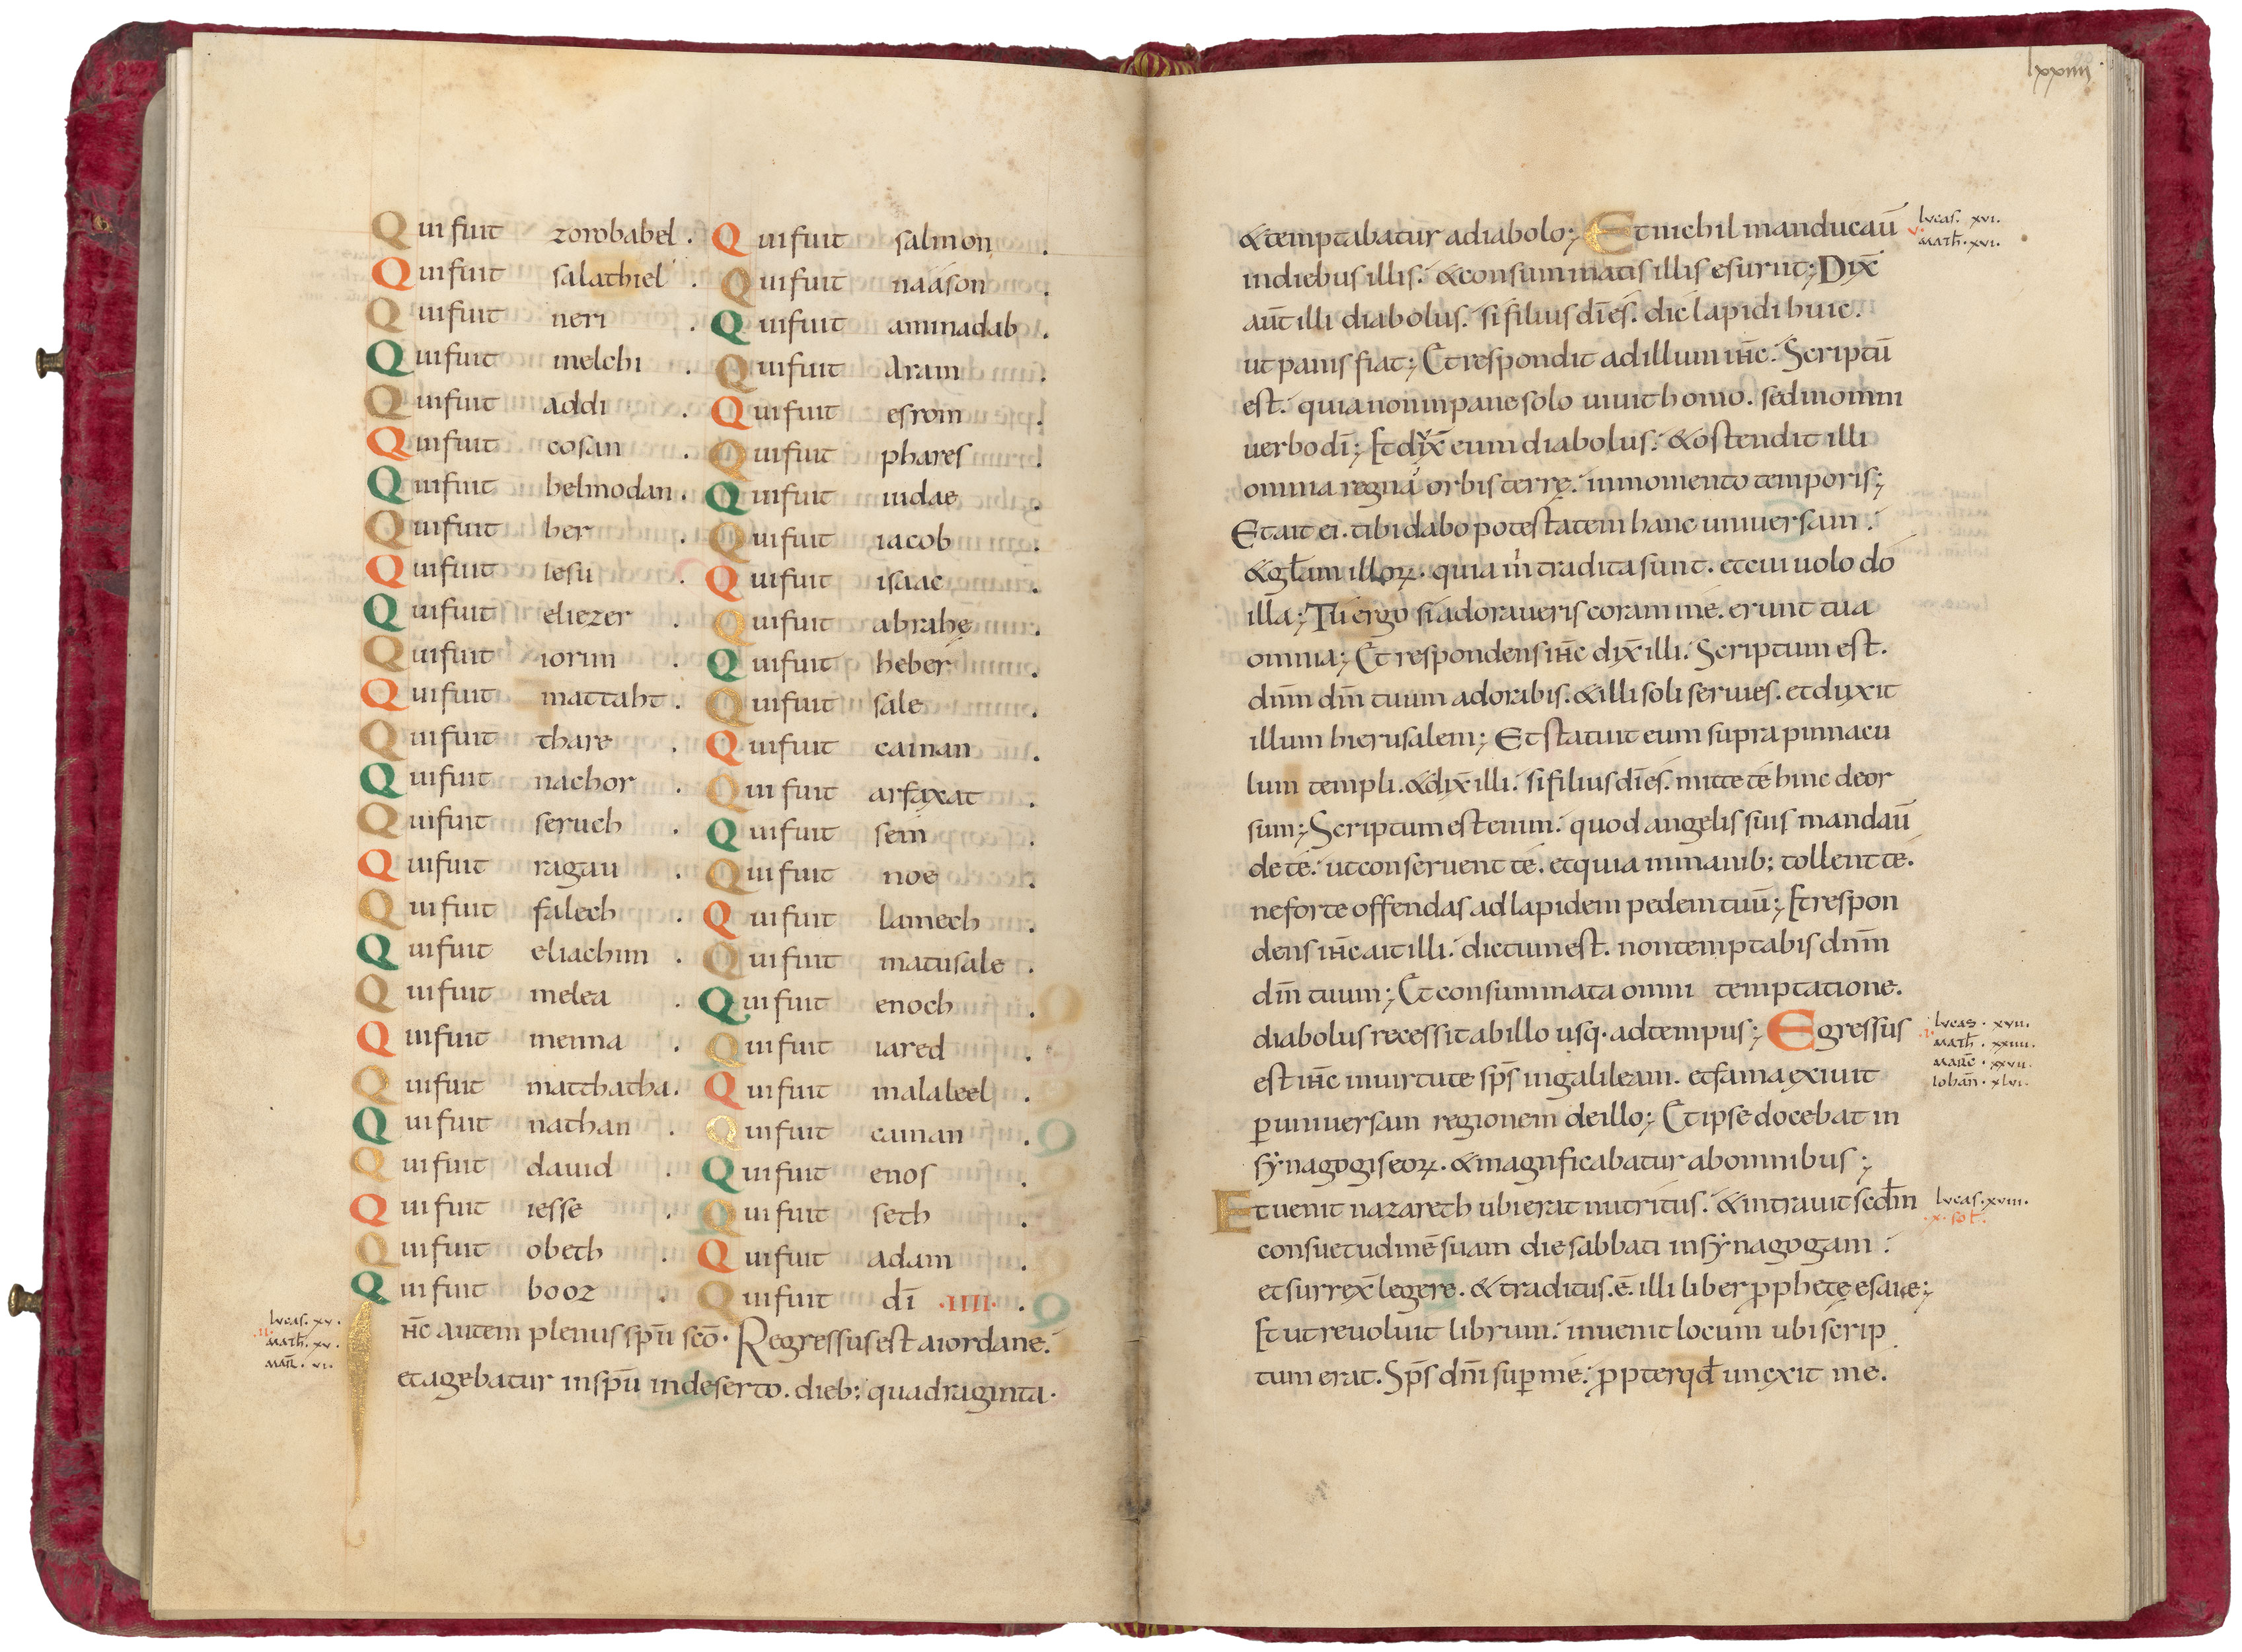 Qui fuit zorobabel.
Qui fuit salathiel.
Qui fuit neri.
Qui fuit melchi.
Qui fuit addi.
Qui fuit cosan.
Qui fuit helmodan.
Qui fuit her.
Qui fuit iesu.
Qui fuit eliezer.
Qui fuit iorim.
Qui fuit mattaht.
Qui fuit thare.
Qui fuit nachor.
Qui fuit seruch.
Qui fuit ragau.
Qui fuit falech.
Qui fuit eliachim.
Qui fuit melea.
Qui fuit menna.
Qui fuit matthatha.
Qui fuit nathan.
Qui fuit dauid.
Qui fuit iesse.
Qui fuit obeth.
Qui fuit booz.
Qui fuit salmon.
Qui fuit naason.
Qui fuit aminadab.
Qui fuit Aram.
Qui fuit esrom.
Qui fuit phares.
Qui fuit iudae.
Qui fuit iacob.
Qui fuit isaac.
Qui fuit abrahę.
Qui fuit heber.
Qui fuit sale.
Qui fuit cainan.
Qui fuit arfaxat.
Qui fuit sem.
Qui fuit noe.
Qui fuit lamech.
Qui fuit matusale.
Qui fuit enoch.
Qui fuit iared.
Qui fuit malaleel.
Qui fuit cainan.
Qui fuit enos.
Qui fuit seth.
Qui fuit adam.
Qui fuit dī ·IIII·.
lucas. xv.
math̄. xv.
mar̄. vi.
Ih̄c autem plenus sp̄u scō. Regressus est a iordane.
et agebatur in sp̄u in deserto. dieb; quadraginta.
lxxiiii
& temptabatur a diabolo; Et nichil manducau̅
in diebus illis. & consummatis illis esuriit; Dix̄
aūt illi diabolus. si filius dī es. dic lapidi huic.
ut panis fiat; Et respondit ad illum ih̄c. Scriptū
est. quia non in pane solo uiuit homo. sed in omni
uerbo dī; Et dux̄ eum diabolus. & ostendit illi
omnia regna orbis terrę. in momento temporis;
Et ait ei. tibi dabo potestatem hanc uniuersam.
& gl̄am illoꝝ. quia m̍ tradita sunt. et cui uolo do
illa; Tu ergo si adoraueris coram me. erunt tua
omnia; Et respondens ih̄c dix̄ illi. Scriptum est.
dnm̄ dm̄ tuum adorabis. & illi soli seruies. et duxit
illum hierusalem; Et statuit eum supra pinnacu
lum templi. & dix̄ illi. si filius dī es. mitte te hinc deor
sum; Scriptum est enim. quod angelis suis mandau̅
de te. ut conseruent te. et quia in manib; tollent te.
ne forte offendas ad lapidem pedem tuū; Et respon
dens ih̄c ait illi. dictum est. non temptabis dnm̄
dm̄ tuum; Et consummata omni temptatione.
diabolus recessit ab illo usq· ad tempus; Egressus
est ih̄c in uirtute sp̄s in galileam. et fama exiuit
ꝑ uniuersam regionem de illo; Et ipse docebat in
synagogis eoꝝ. & magnificabatur ab omnibus;
Et uenit nazareth ubi erat nutritus. & intrauit scdm̄
consuetudinē suam die sabbati in synagogam.
et surrex̄ legere. & traditus. ē. illi liber ꝓphetę esaię;
Et ut reuoluit librum. inuenit locum ubi scrip
tum erat. Sp̄s dnī suꝑ me. ꝓpter qđ unxit me.
lucas. xvi.
v. math̄. xvi.
lucas. xvii.
math̄. xxiii.
marc̄. xxvii.
iohan̄. xlvi.
lucas. xviii.